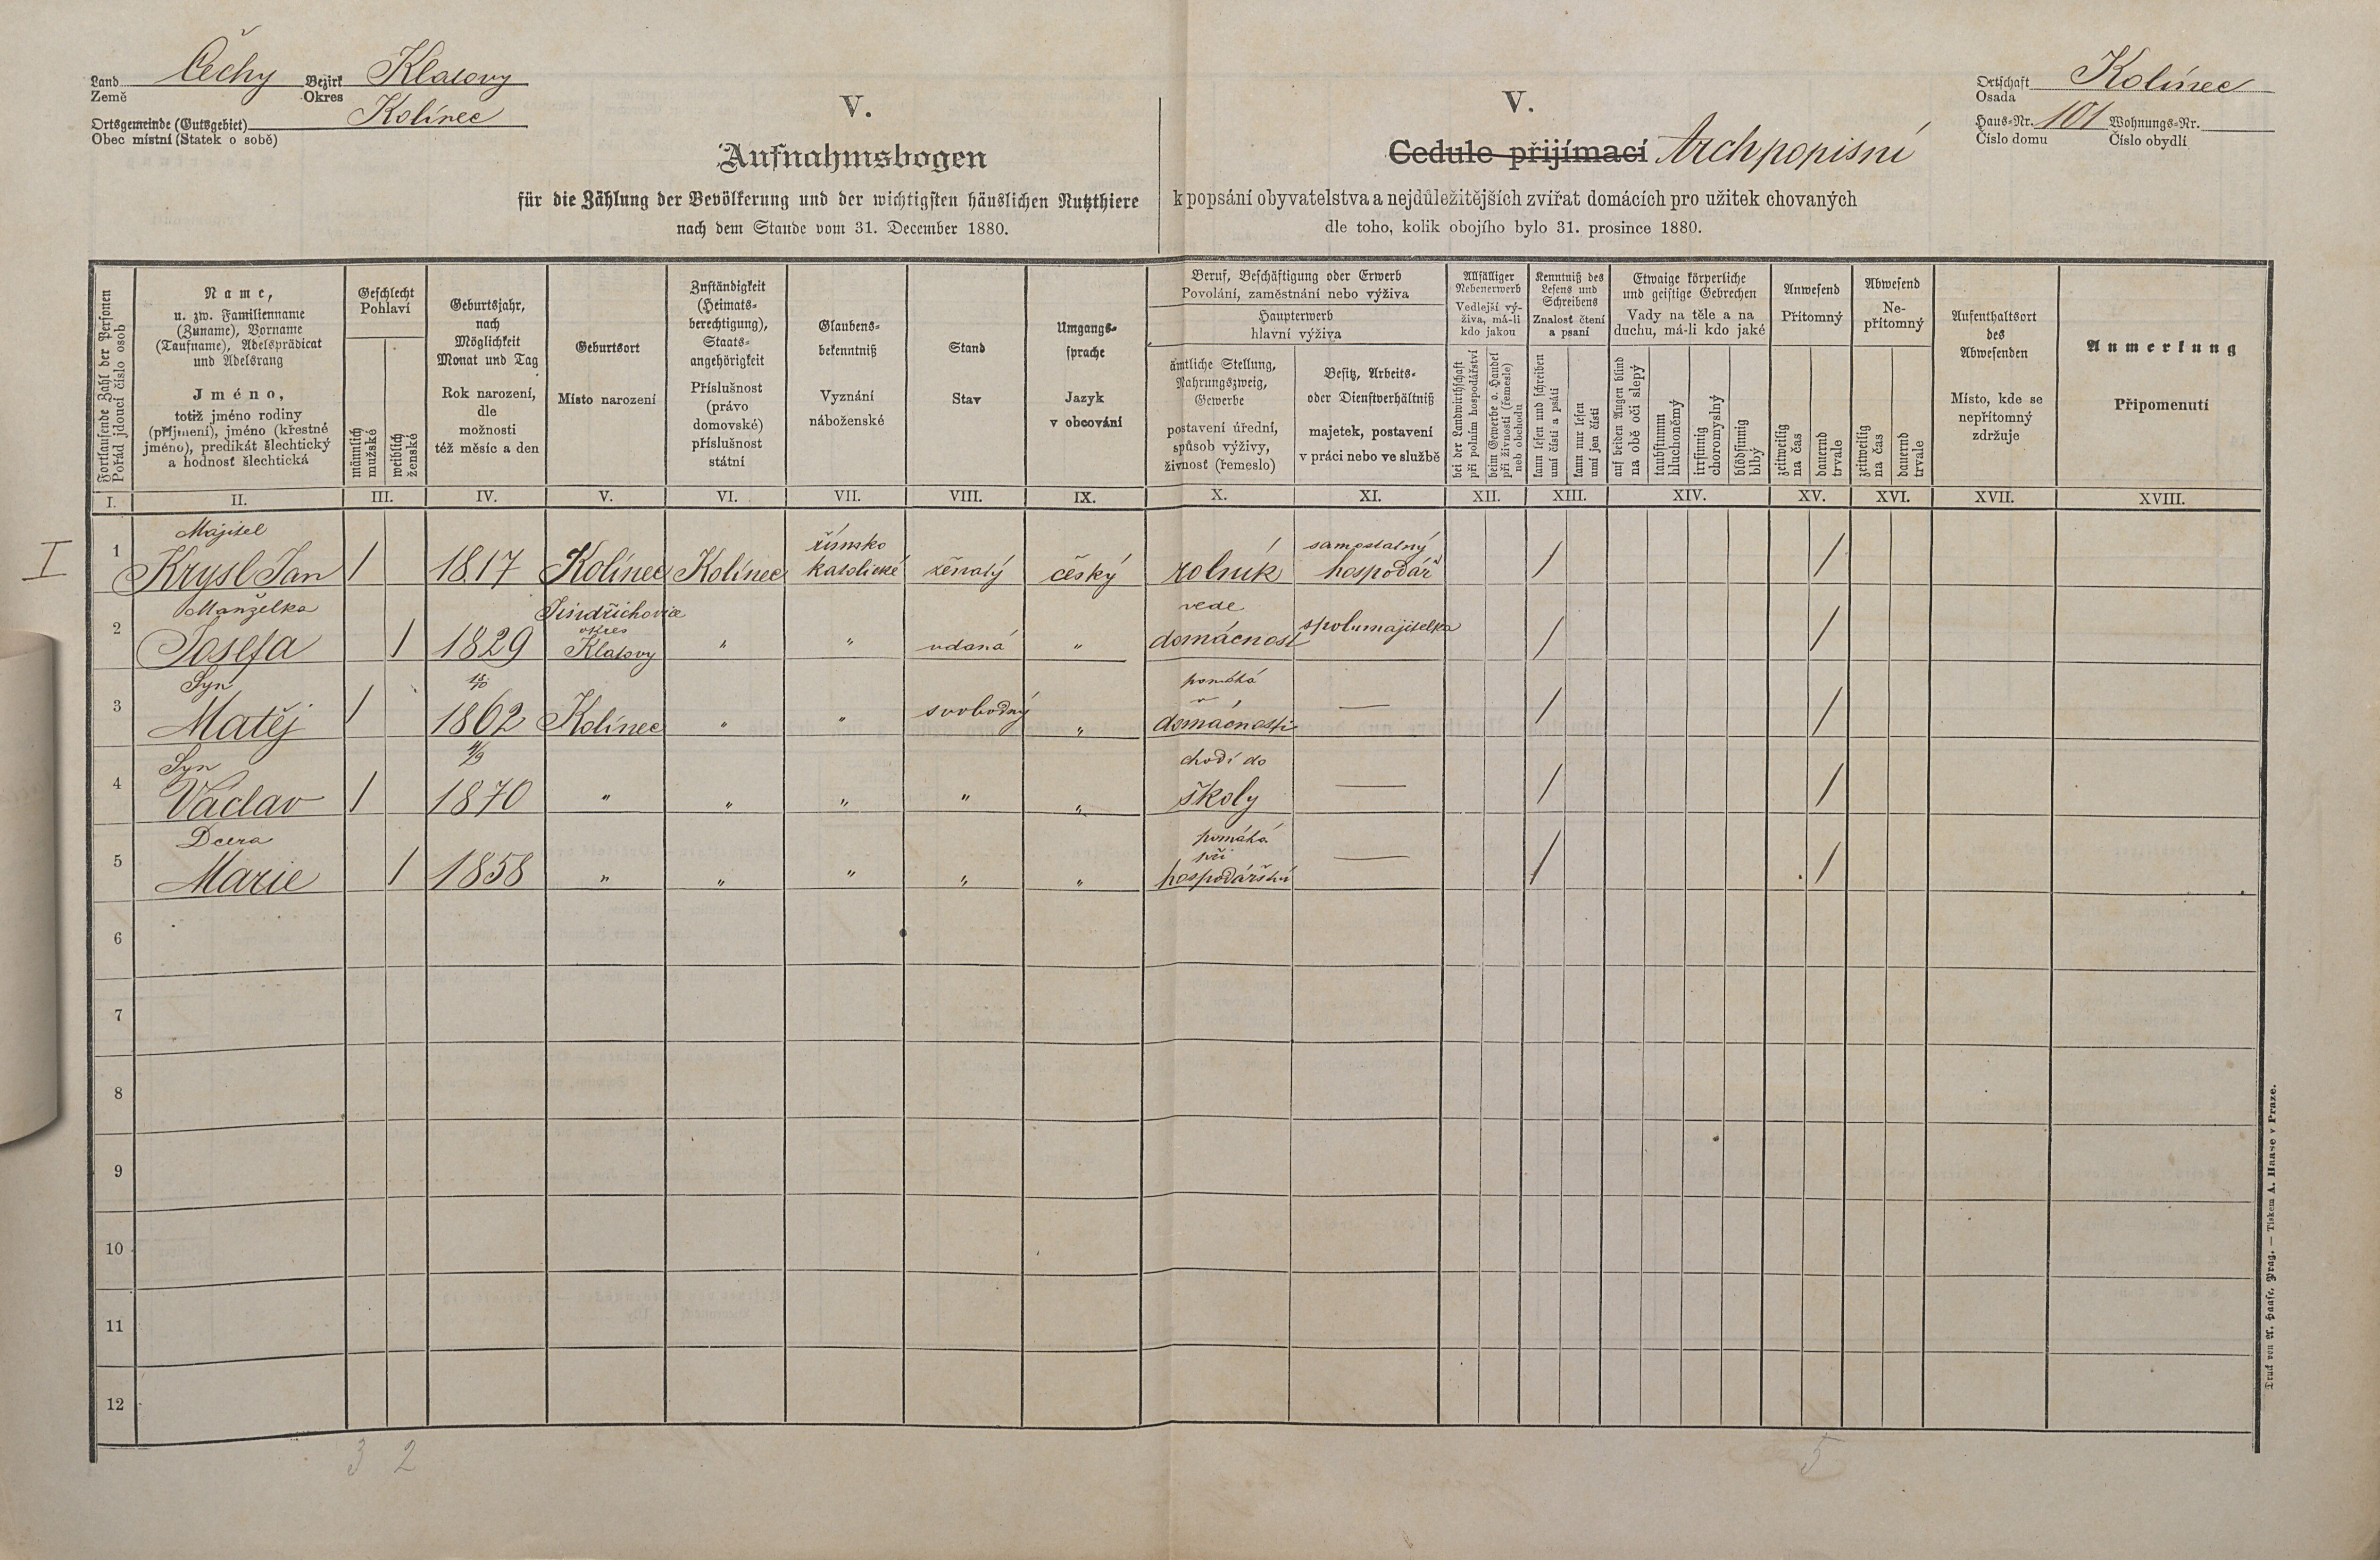 Land Čechy Bezirk Klatovy
Země Okres
Ortsgemeinde (Gutsgebiet) Kolínec
Obec místní (Statek o sobě)
V.
Aufnahmsbogen
für die Zählung der Bevölkerung und der wichtigsten häuslichen Nutzthiere
nach dem Stande vom 31. December 1880.
V.
Cedule přijímací Archpopisní
k popsání obyvatelstva a nejdůležitějších zvířat domácích pro užitek chovaných
dle toho, kolik obojího bylo 31. prosince 1880.
Ortschaft Kolínec
Osada
Haus-Nr. 101 Wohnungs-Nr.
Číslo domu Číslo obydlí
Fortlaufende Zahl der Personen
Pořád jdoucí číslo osob
Name,
u. zw. Familienname
(Zuname), Vorname
(Taufname), Adelsprädicat
und Adelsrang
Jméno,
totiž jméno rodiny
(příjmení), jméno (křestné
jméno), predikát šlechtický
a hodnost šlechtická
Geschlecht
Pohlaví
männlich
mužské
weiblich
ženské
Geburtsjahr,
nach
Möglichkeit
Monat und Tag
Rok narození,
dle
možnosti
též měsíc a den
Geburtsort
Místo narození
Zuständigkeit
(Heimats-
berechtigung),
Staats-
angehörigkeit
Příslušnost
(právo
domovské)
příslušnost
státní
Glaubens-
bekenntniß
Vyznání
náboženské
Stand
Stav
Umgangs-
sprache
Jazyk
v obcování
Beruf, Beschäftigung oder Erwerb
Povolání, zaměstnání nebo výživa
Haupterwerb
hlavní výživa
ämtliche Stellung,
Nahrungszweig,
Gewerbe
postavení úřední,
spůsob výživy,
živnost (řemeslo)
Besitz, Arbeits-
oder Dienstverhältniß
majetek, postavení
v práci nebo ve službě
Allfälliger
Nebenerwerb
Vedlejší vý-
živa, má-li
kdo jakou
bei der Landwirthschaft
při polním hospodářství
beim Gewerbe o. Handel
při živnosti (řemesle)
neb obchodu
Kenntniß des
Lesens und
Schreibens
Znalost čtení
a psaní
kann lesen und schreiben
umí čísti a psáti
kann nur lesen
umí jen čísti
Etwaige körperliche
und geistige Gebrechen
Vady na těle a na
duchu, má-li kdo jaké
auf beiden Augen blind
na obě oči slepý
taubstumm
hluchoněmý
irrsinnig
choromyslný
blödsinnig
blbý
Anwesend
Přítomný
zeitweilig
na čas
dauernd
trvale
Abwesend
Ne-
přítomný
zeitweilig
na čas
dauernd
trvale
Aufenthaltsort
des
Abwesenden
Místo, kde se
nepřítomný
zdržuje
Anmerkung
Připomenutí
I. II. III. IV. V. VI. VII. VIII. IX. X. XI. XII. XIII. XIV. XV. XVI. XVII. XVIII.
I
Majitel římsko samostatný
1 Krysl Jan / 1817 Kolínec Kolínec katolické ženatý český rolník hospodář / /
Manželka Jindřichovice vede
okres
2 Josefa / 1829 Klatovy " " vdaná " domácnost spolumajitelka / /
Syn pomáhá
v
3 Matěj / 1862 Kolínec " " svobodný " domácnosti — / /
Syn 11/9 chodí do
4 Václav / 1870 " " " " " školy — / /
Dcera pomáhá
při
5 Marie / 1858 " " " " " hospodářství — / /
6
7
8
9
10
11
12
3 2 5
Druck von A. Haase, Prag. — Tiskem A. Haase v Praze.